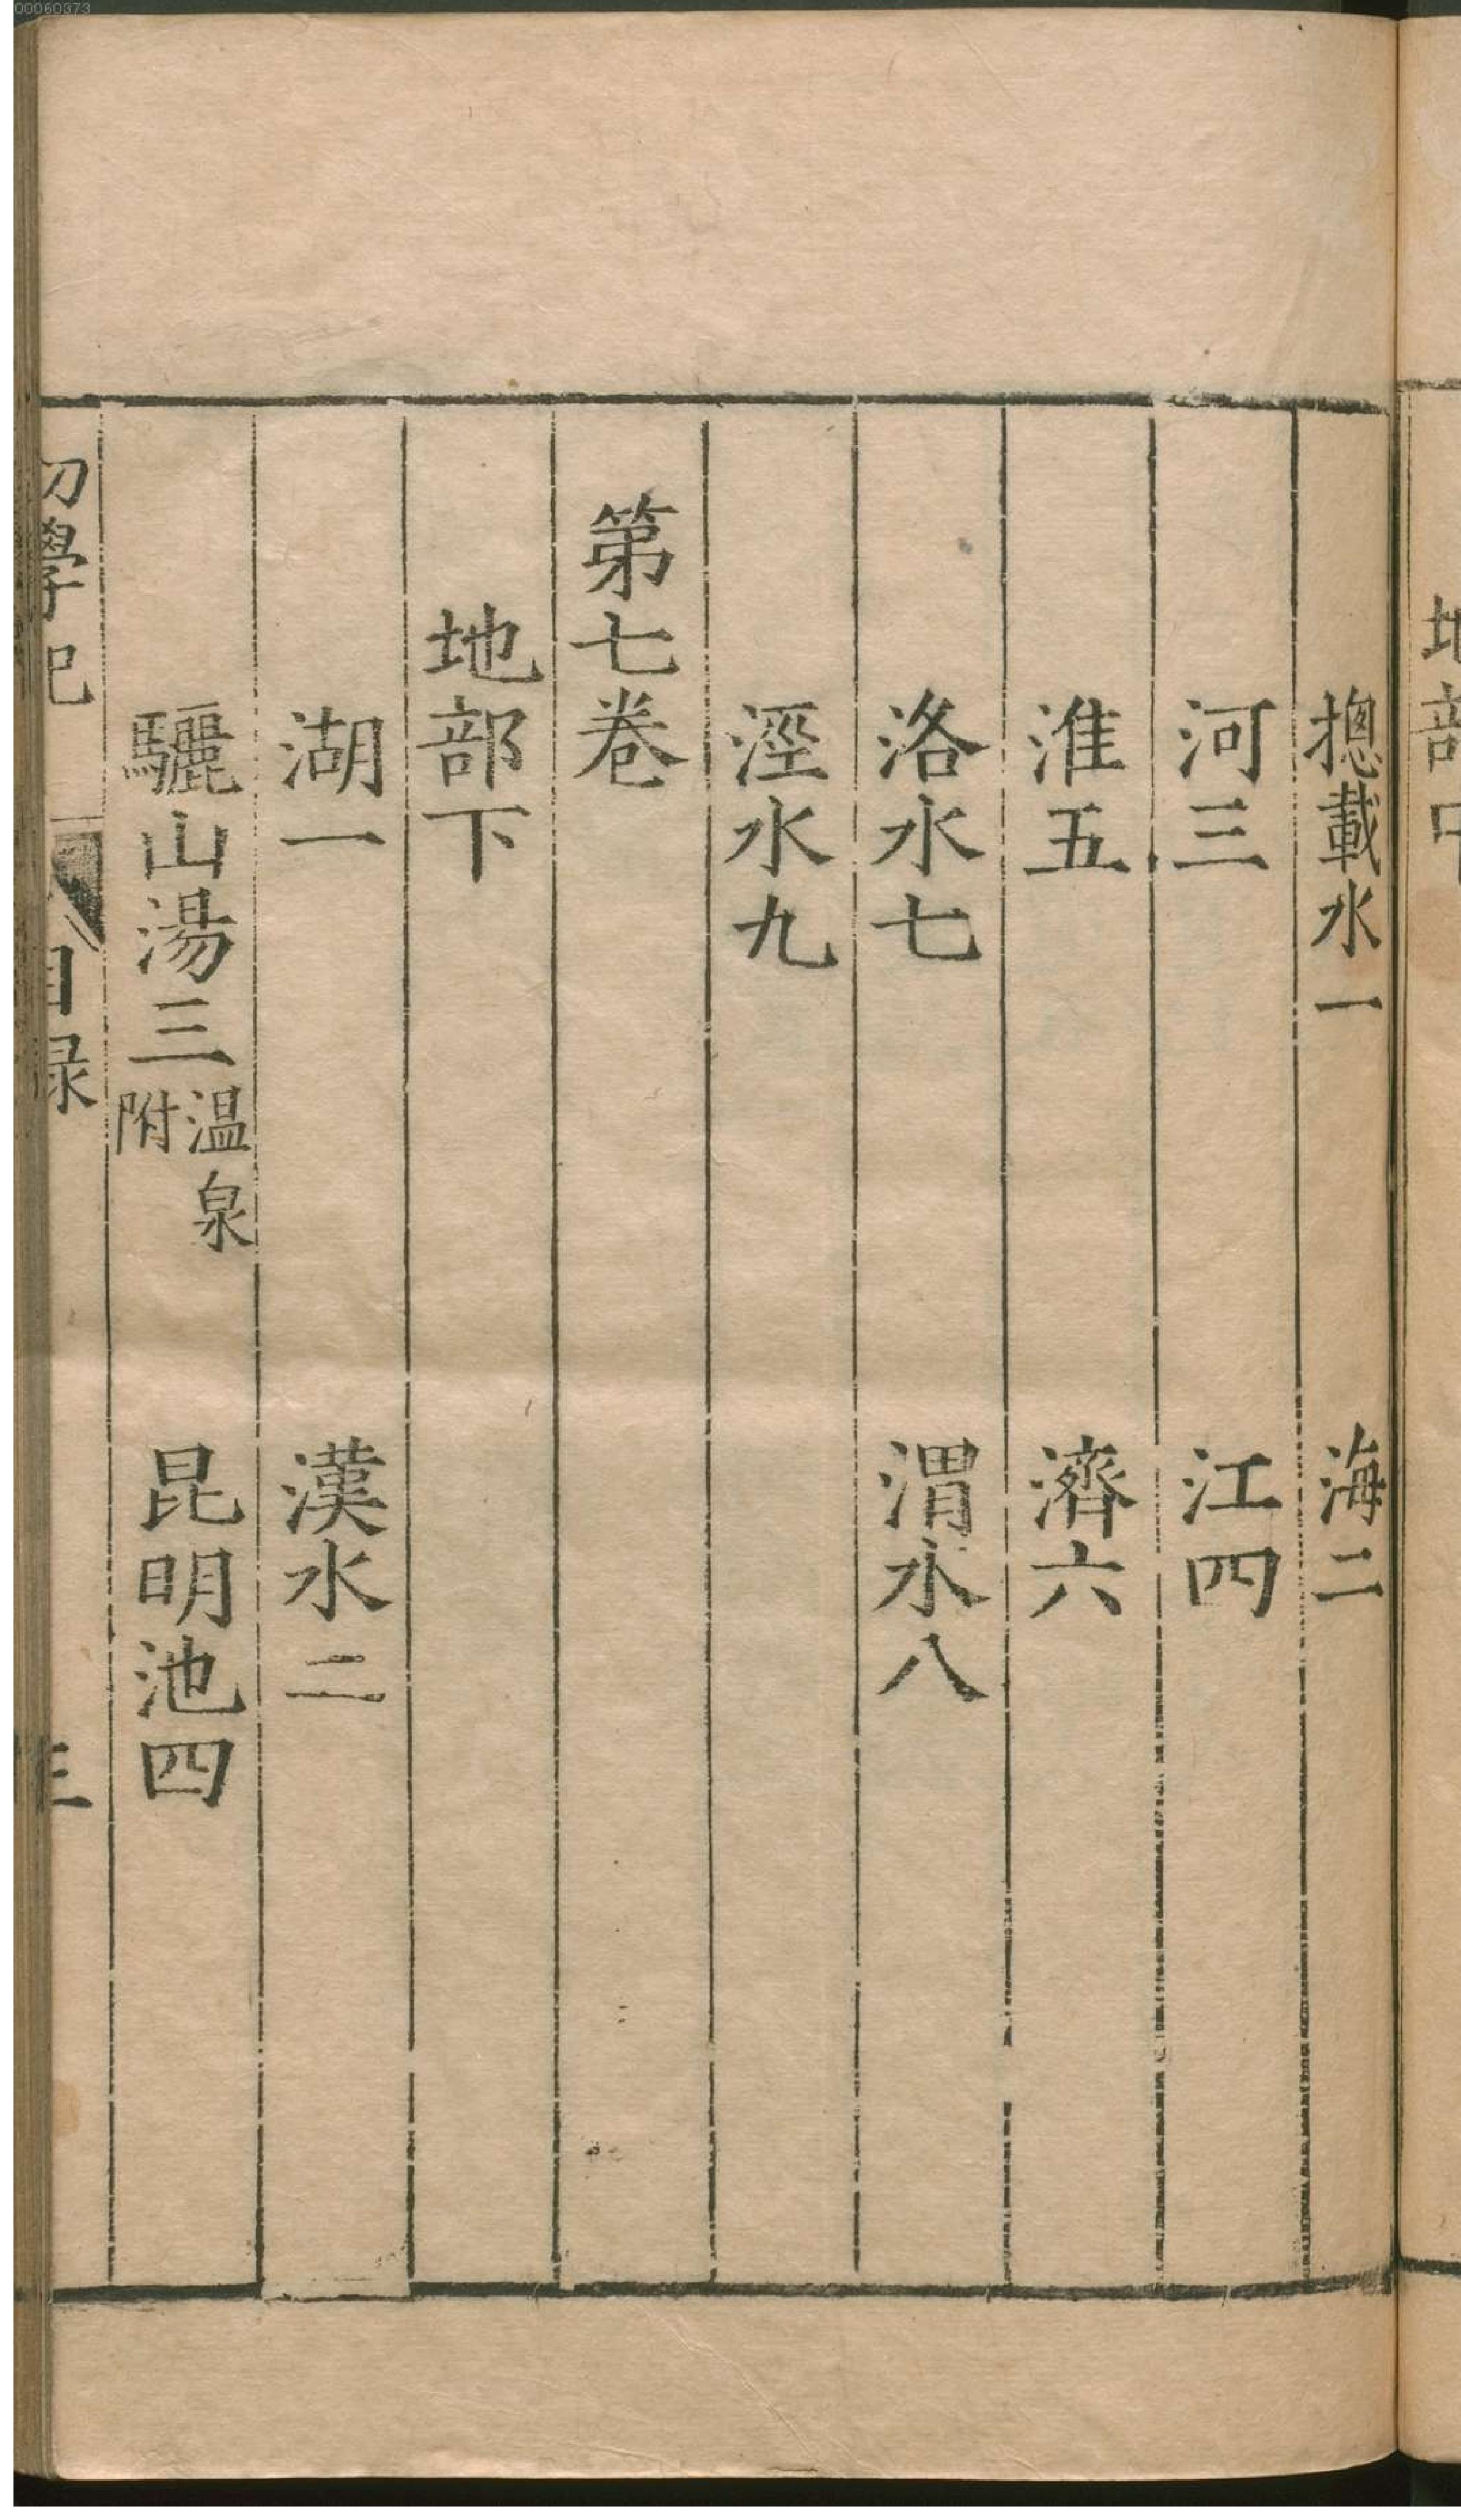 地部中
摠載水一　海二
河三　江四
淮五　濟六
洛水七　渭水八
涇水九
第七卷
地部下
湖一　漢水二
驪山湯三温泉附　昆明池四
初學記　目録　三
00060373